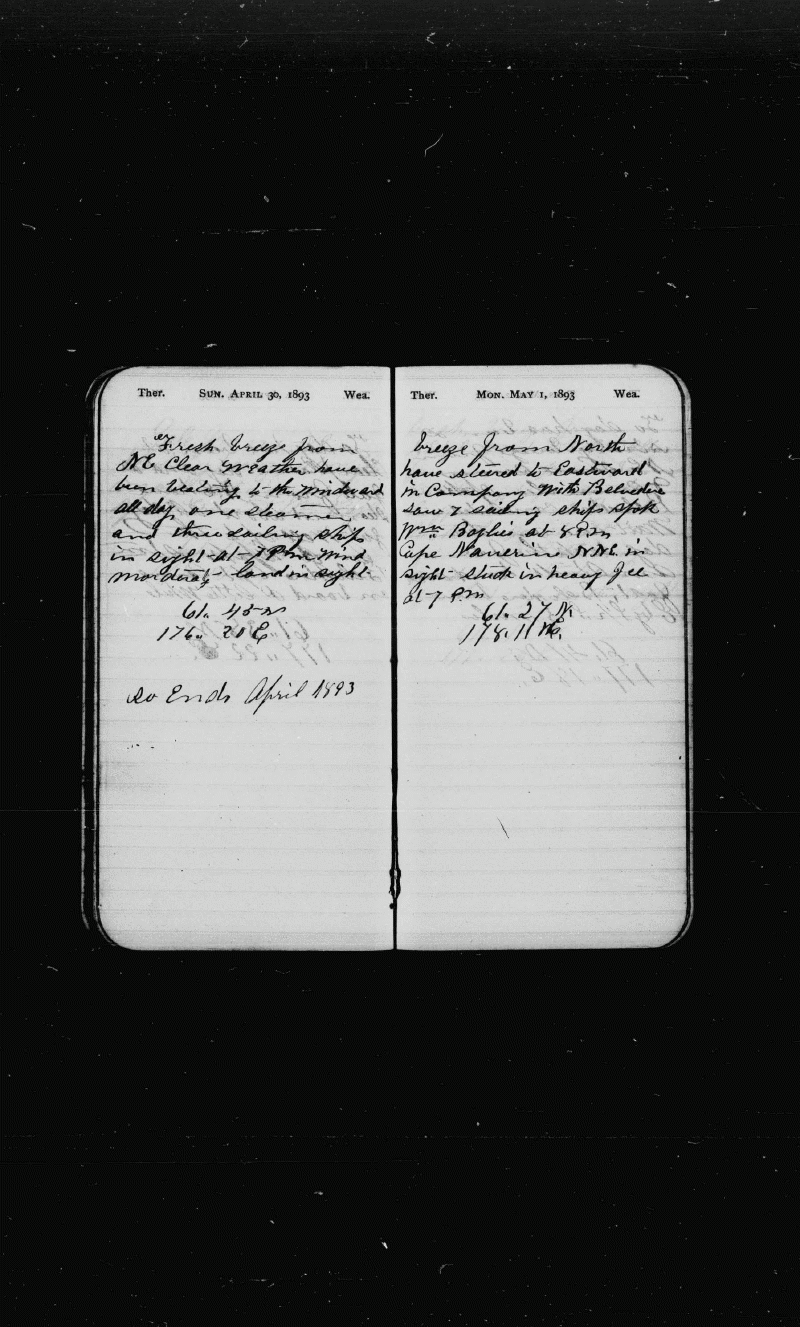 Ther. SUN. APRIL 30, 1893 Wea.
Fresh breeze from
NE Clear Weather have
been beating to the Windward
all day one steamer
and three sailing ships
in sight at 7 P.m Wind
land in sight
61. 45 N
176.. 20 E
so Ends April 1893
Ther. MON. MAY 1, 1893 Wea.
breeze from North
have steered to Eastward
in Company With Belvedere
saw 7 sailing ships spok
Wm Baylies at 8 P.m
Cape Naverin N.N.E. in
sight stuck in heavy Ice
at 7 P.m
61. 27 N.
178. 11 E.